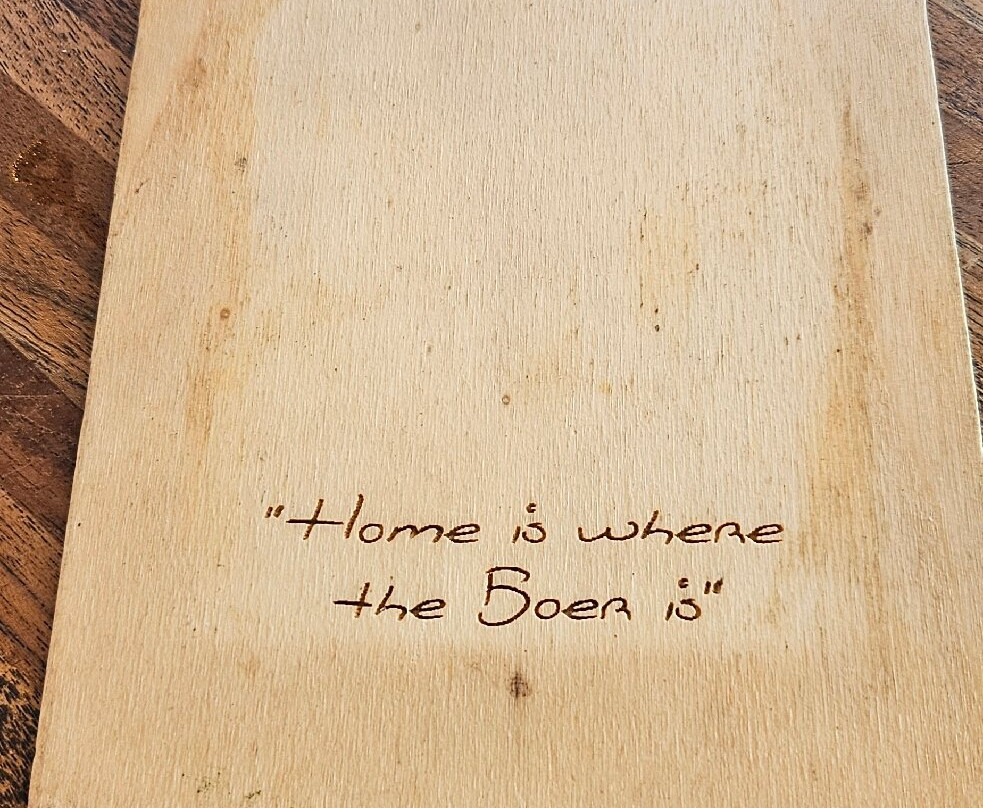 "Home is where
the Boer is"